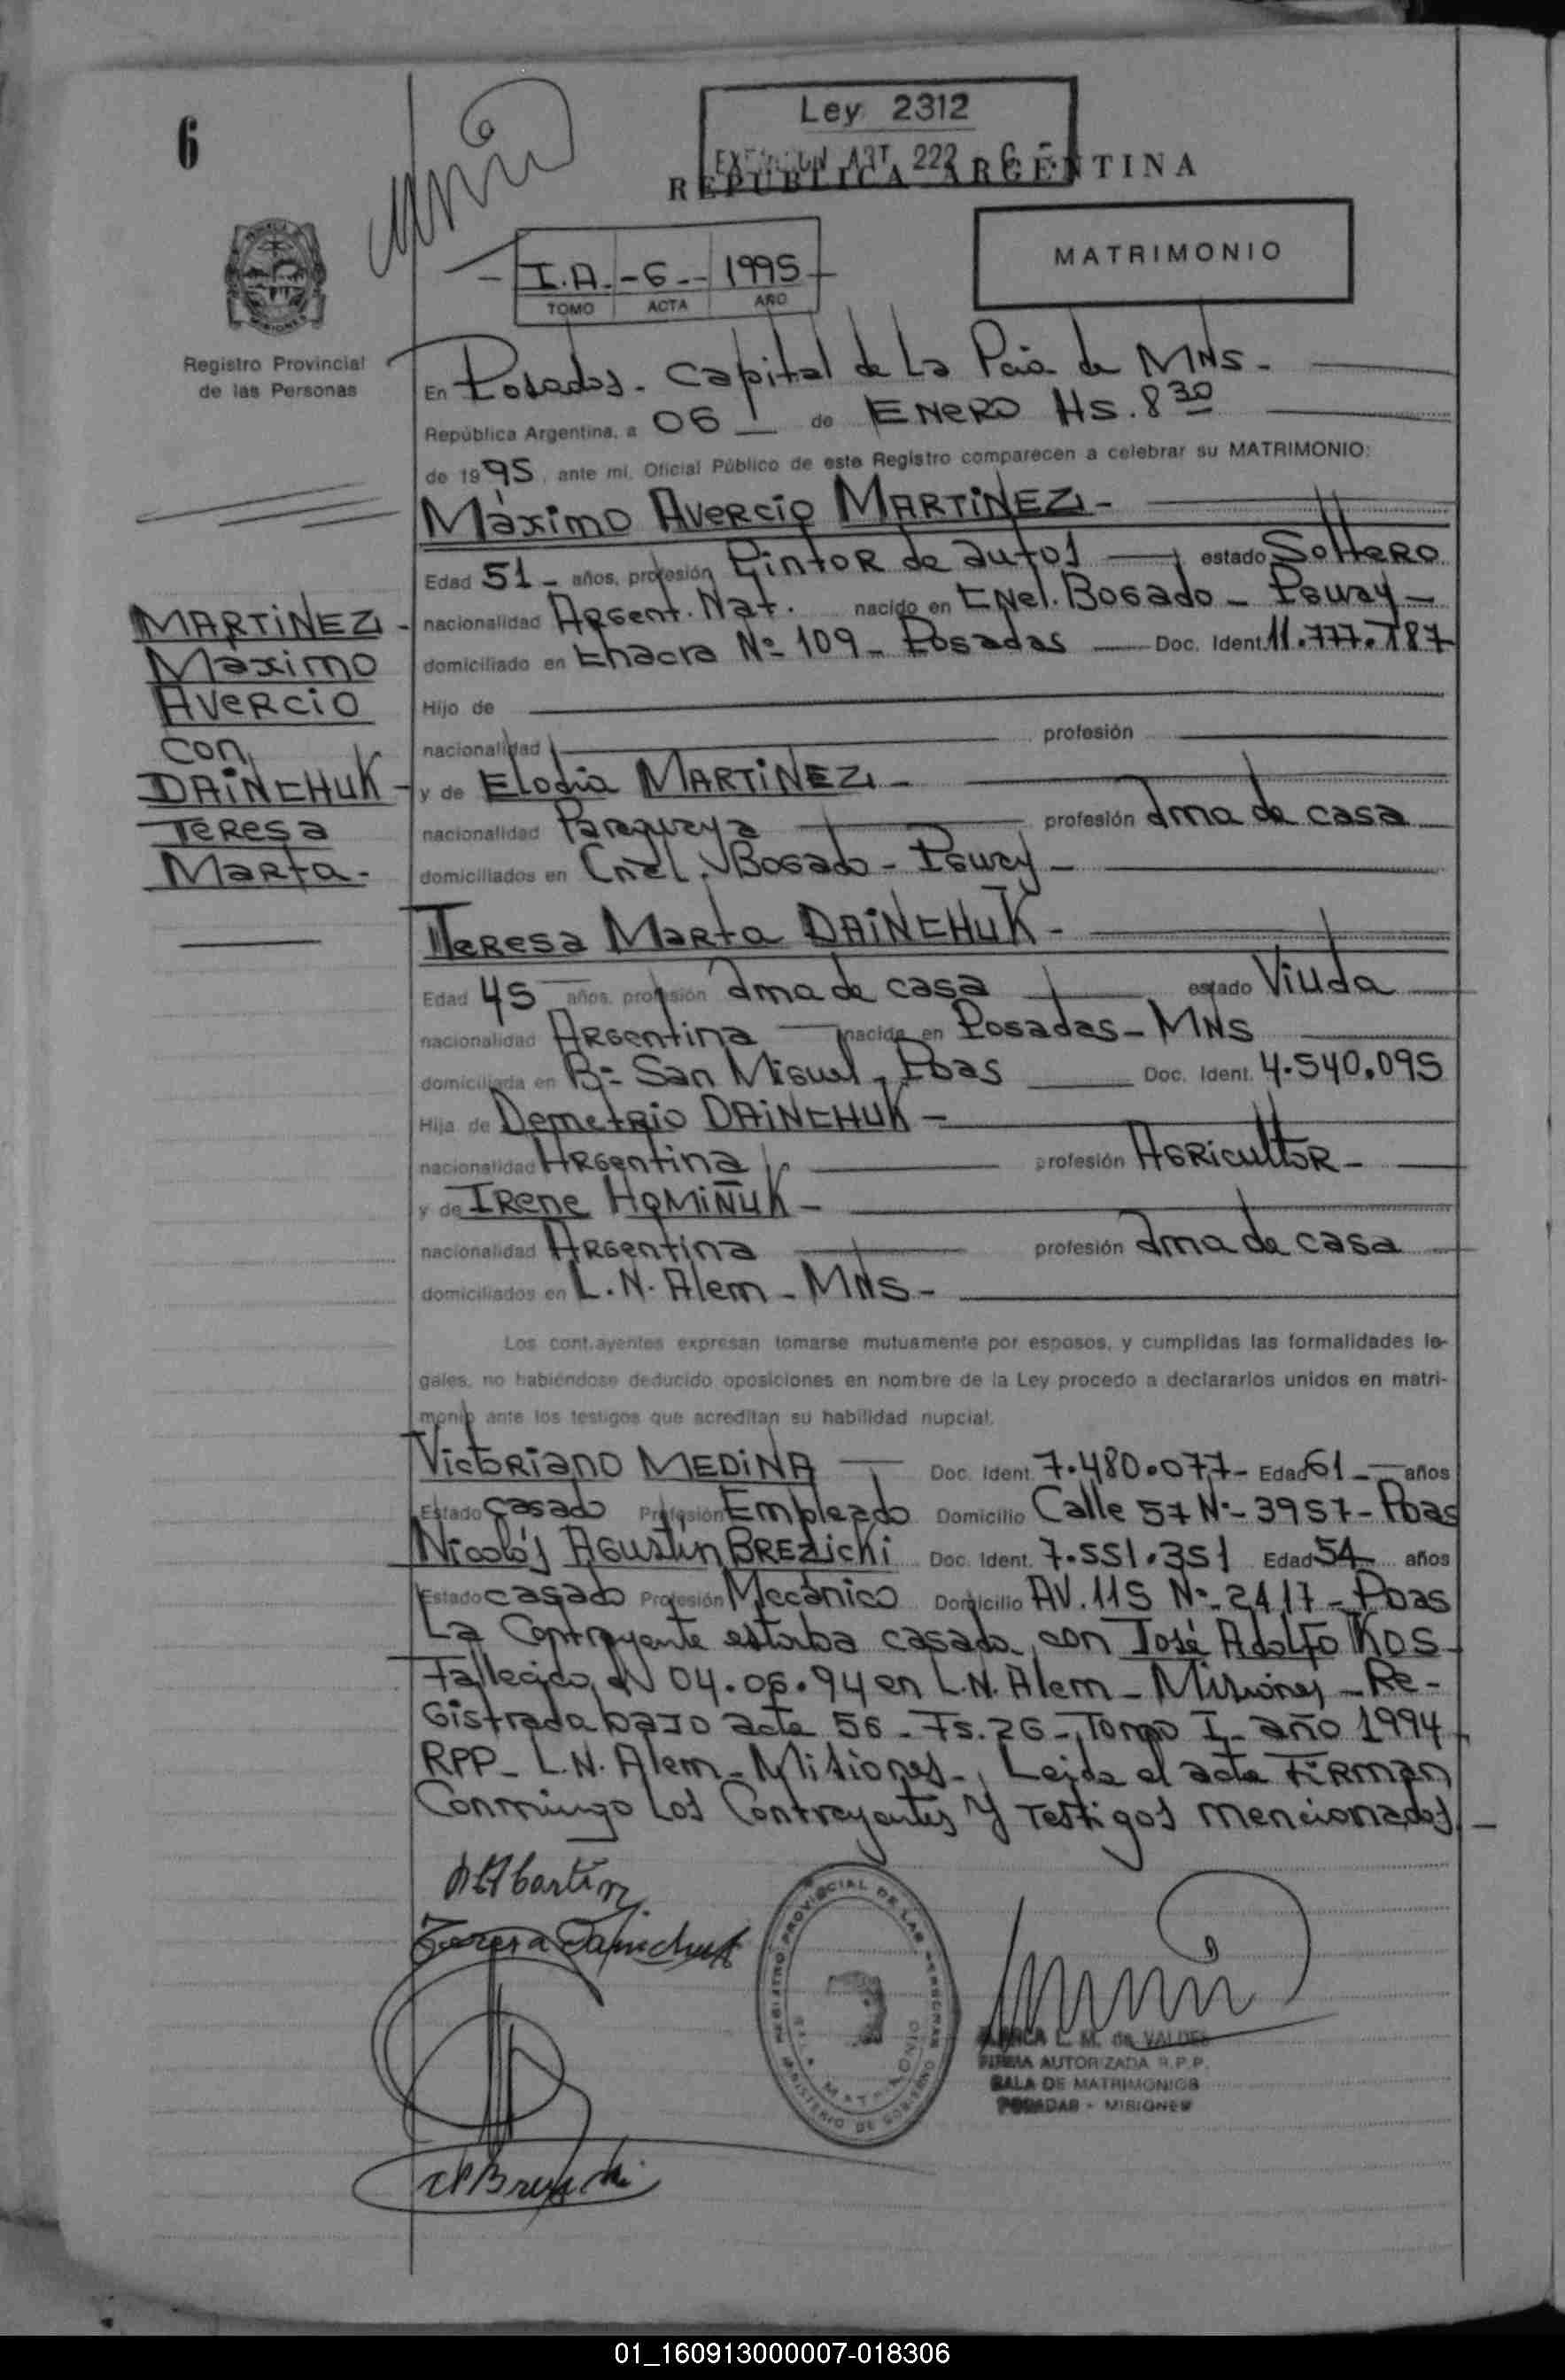 6
Ley 2312
ART. 222
REPUBLICA ARGENTINA
MATRIMONIO
I.A. - 6 - 1995
TOMO ACTA AÑO
Registro Provincial
de las Personas
En Posadas - Capital de La Pcia de MNS -
República Argentina, a 06 de ENERO Hs. 8 30
de 1995, ante mi, Oficial Público de este Registro comparecen a celebrar su MATRIMONIO:
Máximo Avercio MARTINEZ -
Edad 51 - años, profesión Pintor de autos estado Soltero
nacionalidad Argent. Nat. nacido en Cnel. Bogado - Pguay -
domiciliado en Chacra Nº 109 - Posadas Doc. Ident. 11.777.787
Hijo de
nacionalidad profesión
y de Elodia MARTINEZ -
nacionalidad Paraguaya profesión ama de casa
domiciliados en Cnel. Bogado - Pguay -
MARTINEZ -
Maximo
Avercio
con
DAINCHUK -
Teresa
Marta -
Teresa Marta DAINCHUK -
Edad 45 años, profesión ama de casa estado Viuda
nacionalidad Argentina nacida en Posadas - MNS
domiciliada en Bº San Miguel - Pdas Doc. Ident. 4.540.095
Hija de Demetrio DAINCHUK -
nacionalidad Argentina profesión Agricultor -
y de Irene HOMIÑUK -
nacionalidad Argentina profesión ama de casa
domiciliados en L.N. Alem - MNS -
Los contrayentes expresan tomarse mutuamente por esposos, y cumplidas las formalidades le-
gales, no habiéndose deducido oposiciones en nombre de la Ley procedo a declararlos unidos en matri-
monio ante los testigos que acreditan su habilidad nupcial.
Victoriano MEDINA Doc. Ident. 7.480.077 - Edad 61 - años
Estado casado Profesión Empleado Domicilio Calle 57 Nº - 3957 - Pdas
Nicolás Agustín BREZICHI Doc. Ident. 7.551.351 Edad 54 años
Estado casado Profesión Mecánico Domicilio AV. 115 Nº - 2417 - Pdas
La Contrayente estaba casada con José Adolfo KOS -
Fallecido el 04.06.94 en L.N. Alem - Misiones - Re-
gistrada bajo acta 56 - Fs. 26 - Tomo I - año 1994
RPP - L.N. Alem - Misiones -, Leida el acta FIRMAN
Conmingo Los Contrayentes y Testigos mencionados -
Teresa Dainchuk
REGISTRO PROVINCIAL DE LAS PERSONAS
MINISTERIO DE GOBIERNO
L. M. de VALDES
FIRMA AUTORIZADA R.P.P.
SALA DE MATRIMONIOS
POSADAS - MISIONES
01_160913000007-018306